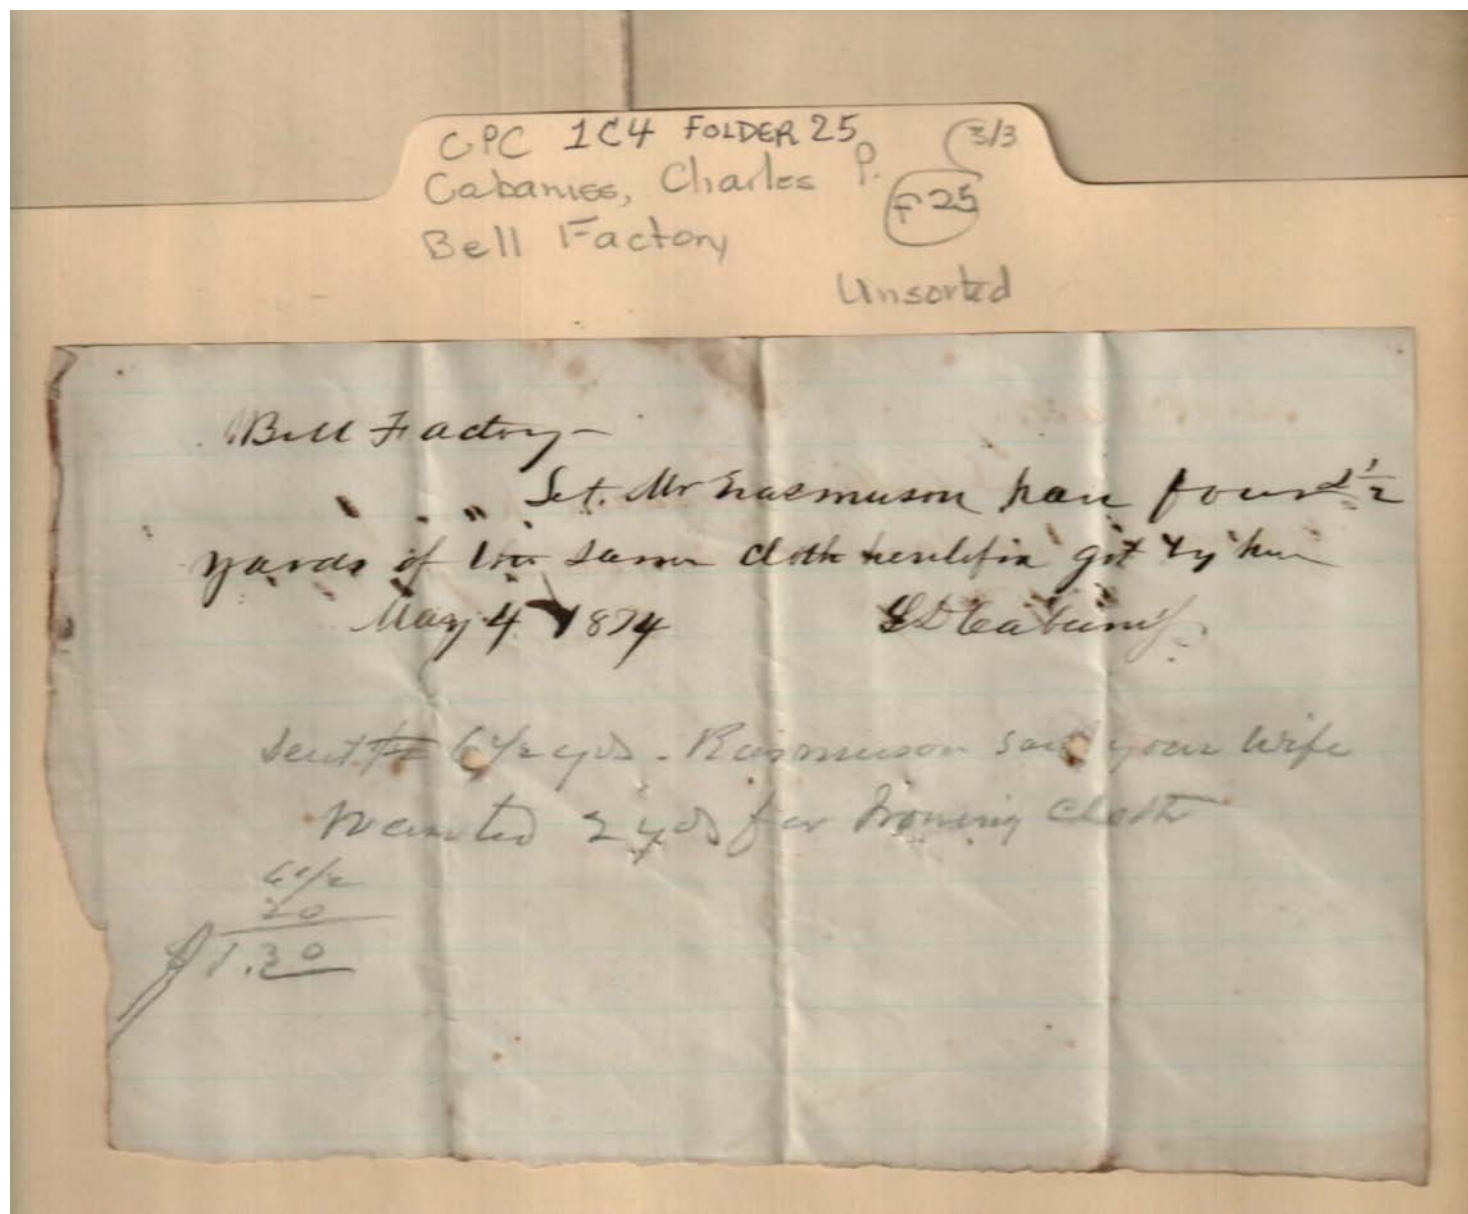 CPC 1C4 FOLDER 25 3/3
Cabaniss, Charles P.
F 25
Bell Factory
Unsorted
Bell Factory
Let Mr Rasmuson have four & 1/2
yards of the same cloth heretofore got by him
May 4 1874 Cabaniss
Sent 6 1/2 yds - Rasmuson said your wife
wanted 2 yds for Ironing cloth
6 1/2
20
$1.30